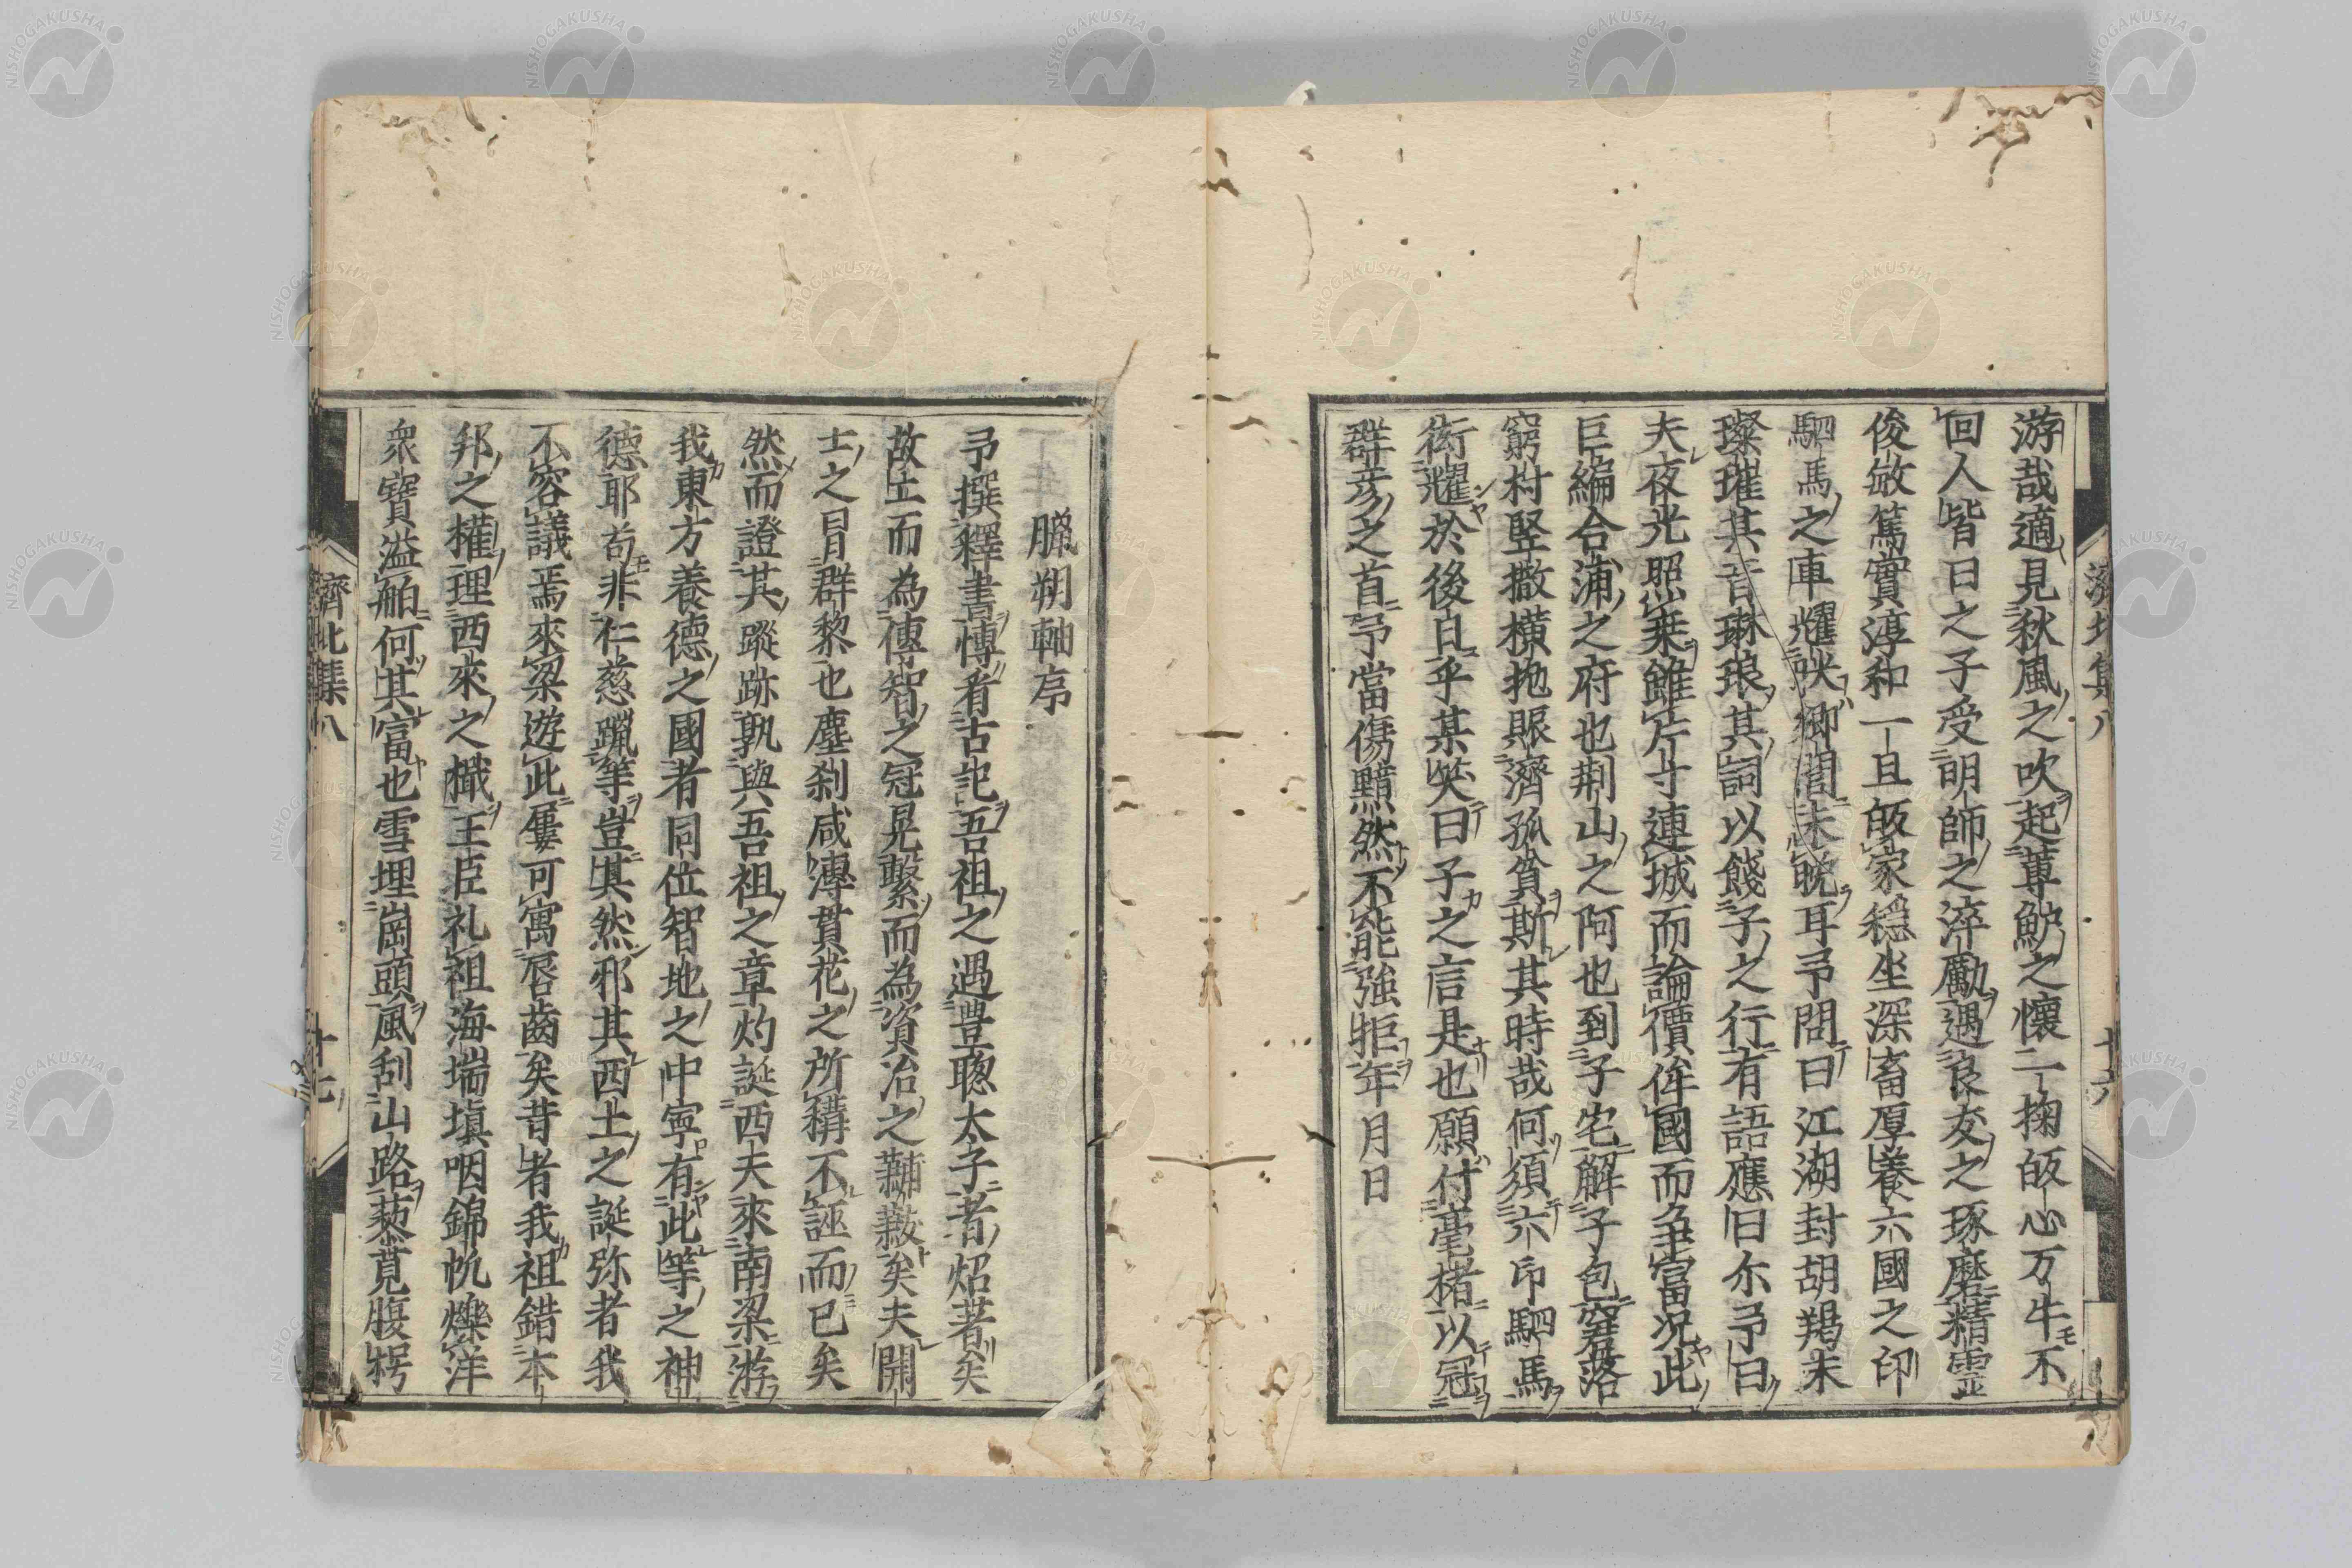 游哉適見秋風之吹起蓴鱸之懷二掬皈心万牛不
回人皆曰之子受明師之淬勵遇良友之琢磨精靈
俊敏篤實淳和一旦皈家穩坐深畜厚養六國之印
駟馬之車耀映鄉閭未晚耳予問曰江湖封胡羯末
璨璀其音琳琅其詞以餞子之行有語應曰尓予曰
夫夜光照乗雖片寸連城而論價侔國而争富况此
巨編合浦之府也荆山之阿也到子宅解子包窮落
窮村竪撒橫抛賑濟孤貧斯其時哉何須六印駟馬
衒耀於後白乎某笑曰子之言是也願付毫楮以冠
群彦之首予當傷黯然不能強拒年月日
濟北集八
十六
臘朔軸序
予撰釋書愽看古記吾祖之遇豊聰太子者炤著矣
故立而為傳智之冠晃繫而為資治之黼黻矣夫開
士之㫖群黎也塵刹咸漙貫花之所稱不誣而已矣
然而證其蹤跡孰與吾祖之章灼誕西夫來南梁游
我東方養德之國者同位智地之中寧有此等之神
德耶苟非仁慈躐等豈其然邪其西土之誕弥者我
不容議焉來梁遊此屢可寓唇齒矣昔者我祖錯本
邦之權理西來之檝王臣礼祖海耑塡咽錦帆爍洋
衆寶溢舶何其富也雪埋崗頭風刮山路藜莧腹枵
濟北集八
十七